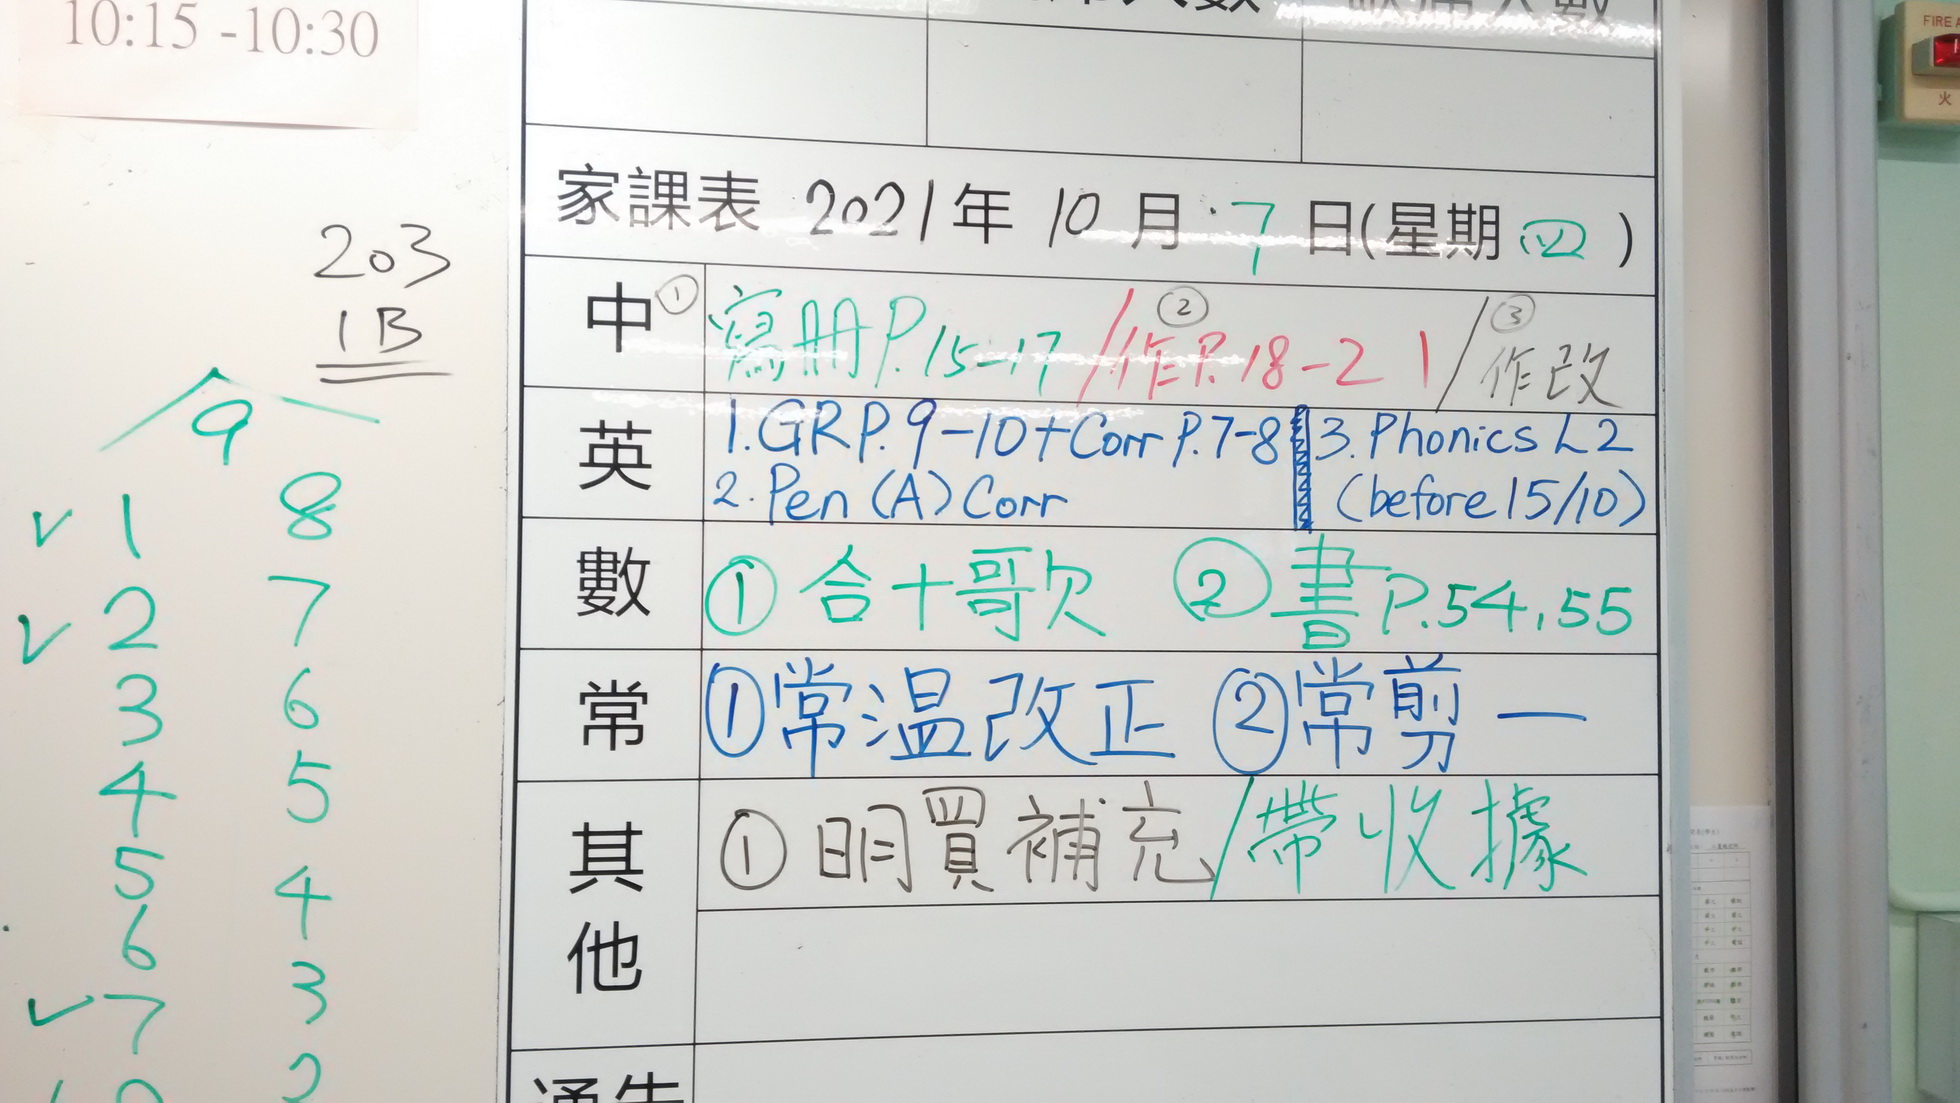 10:15 -10:30
203
1B
9
1 8
2 7
3 6
4 5
5 4
6 3
7
家課表 2021年 10月 7日(星期四)
中 ① 寫冊P.15-17 / ② 作P.18-21 / ③ 作改
英 1. GR P.9-10+Corr P.7-8 3. Phonics L2
2. Pen (A) Corr (before 15/10)
數 ① 合十歌 ② 書P.54,55
常 ①常温改正 ②常剪一
其他 ① 明買補充/帶收據
通告
FIRE
火